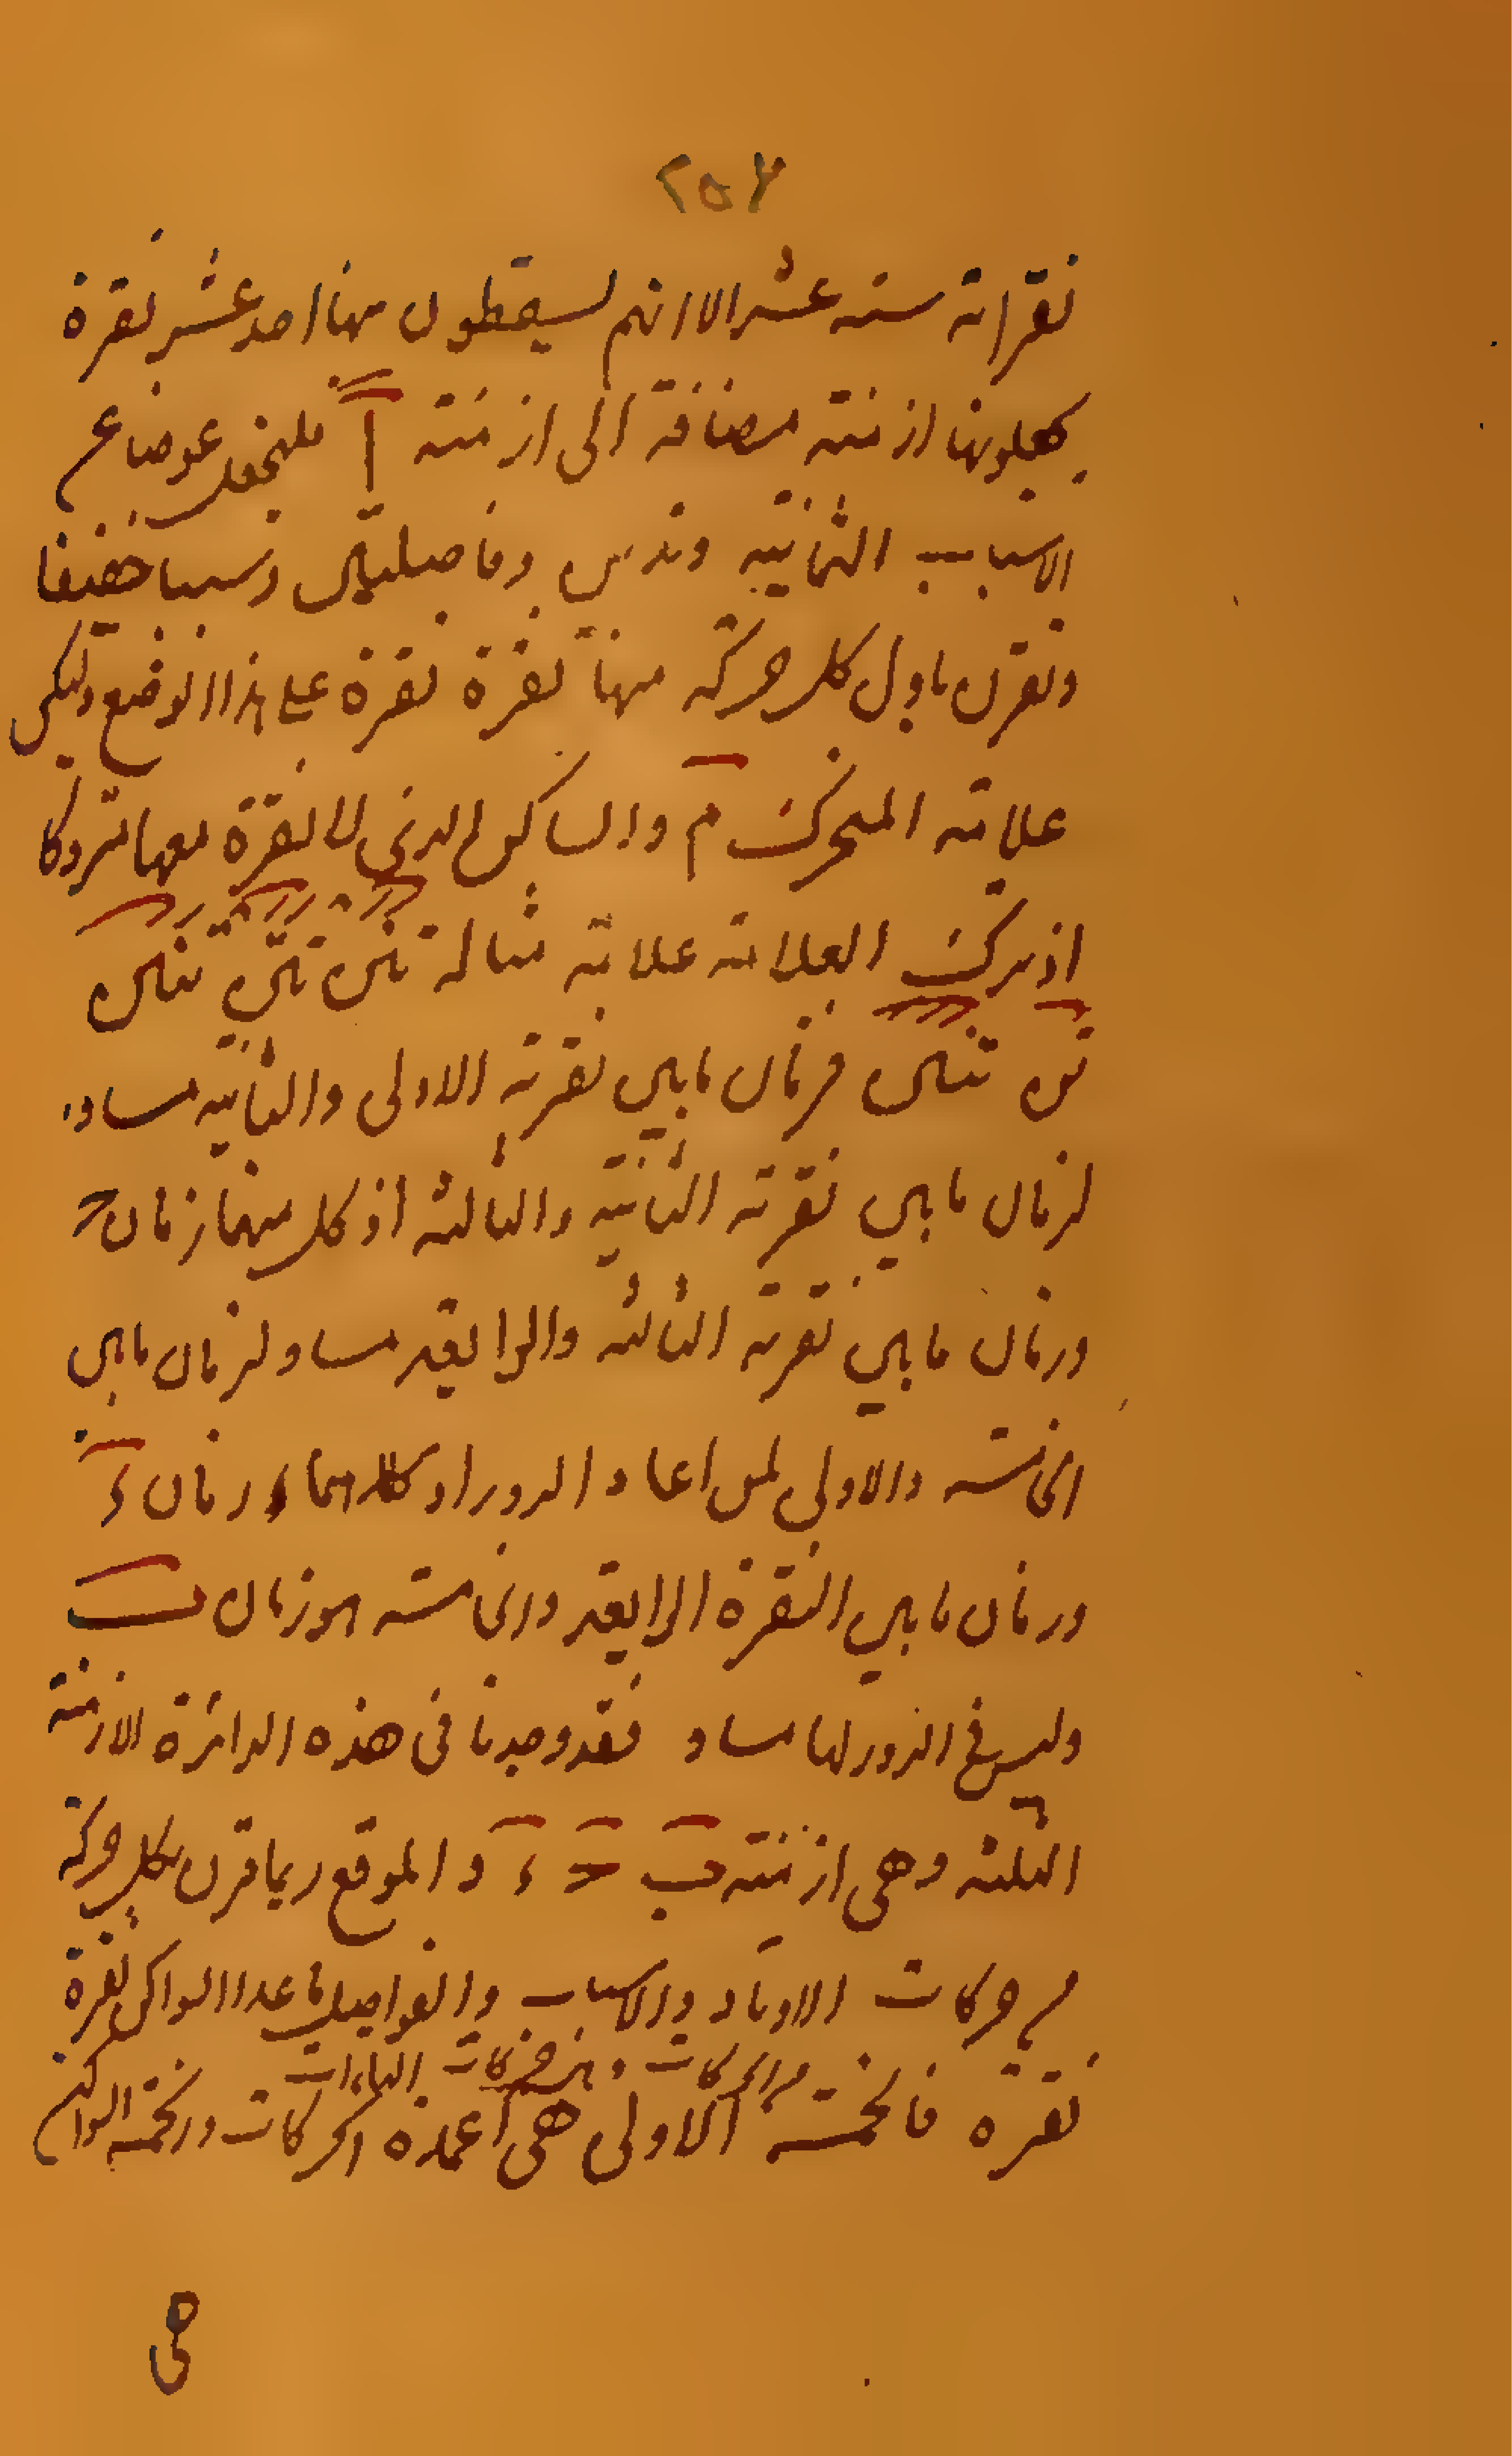 ٢٥٢
نقراته ستة عشر الا انهم يسقطون منها احد عشر نقرة
يجعلونها ازمنة مضافة الى ازمنة آ فلنجعل عوضا عن
الاسباب الثمانية وتدين وفاصلتين وسببا خفيفا
ونقرن باول كل حركة منها نقرة نقرة على هذا الوضع وليكن
علامة المتحرك م والساكن الذي لا نقرة معها متروكا
اذ ترك العلامة علامة مثاله تنن تنن تننن
تن تننن فزمان ما بين نقرته الاولى والثانية مساو
لزمان ما بين نقرته الثانية والثالثة اذ كل منهما زمان ج
وزمان ما بين نقرته الثالثة والرابعة مساو لزمان ما بين
الخامسة والاولى لمن اعاد الدور اذ كلاهما زمان ء
وزمان ما بين النقرة الرابعة والخامسة هو زمان ب
وليس في الدور لها مساو فقد وجدنا في هذه الدائرة الازمنة
الثلثة وهي ازمنة ب ج ء و الموقع ربما قرن بكل حركة
من حركات الاوتاد والاسباب والفواصل ما عدا السواكن نقرة
من الحركات وهذه حركات التاءات
نقرة فالخمسة الاولى هي اعمدة الحركات والخمسة السواكن
هي